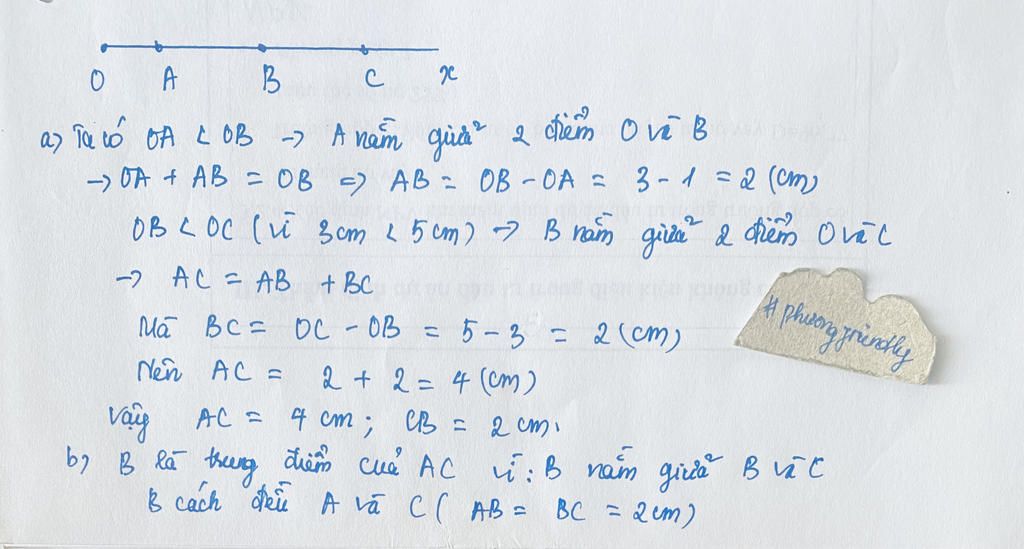 O A B C x
a) Ta có OA < OB → A nằm giữa 2 điểm O và B
→ OA + AB = OB => AB = OB - OA = 3 - 1 = 2 (cm)
OB < OC (vì 3cm < 5cm) → B nằm giữa 2 điểm O và C
→ AC = AB + BC
Mà BC = OC - OB = 5 - 3 = 2 (cm)
#phuongfriendly
Nên AC = 2 + 2 = 4 (cm)
Vậy AC = 4 cm; CB = 2 cm.
b) B là trung điểm của AC vì: B nằm giữa B và C
B cách đều A và C ( AB = BC = 2cm)